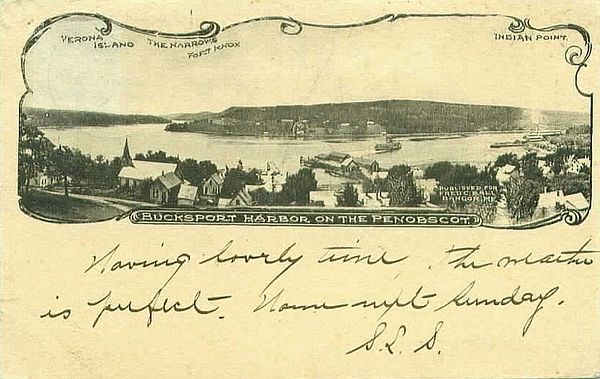 VERONA ISLAND
THE NARROWS
FORT KNOX
INDIAN POINT.
PUBLISHED FOR
FRED C. BALL
BANGOR, ME.
BUCKSPORT HARBOR ON THE PENOBSCOT.
Having lovely time. The weather
is perfect. Home next Sunday.
S. L. S.